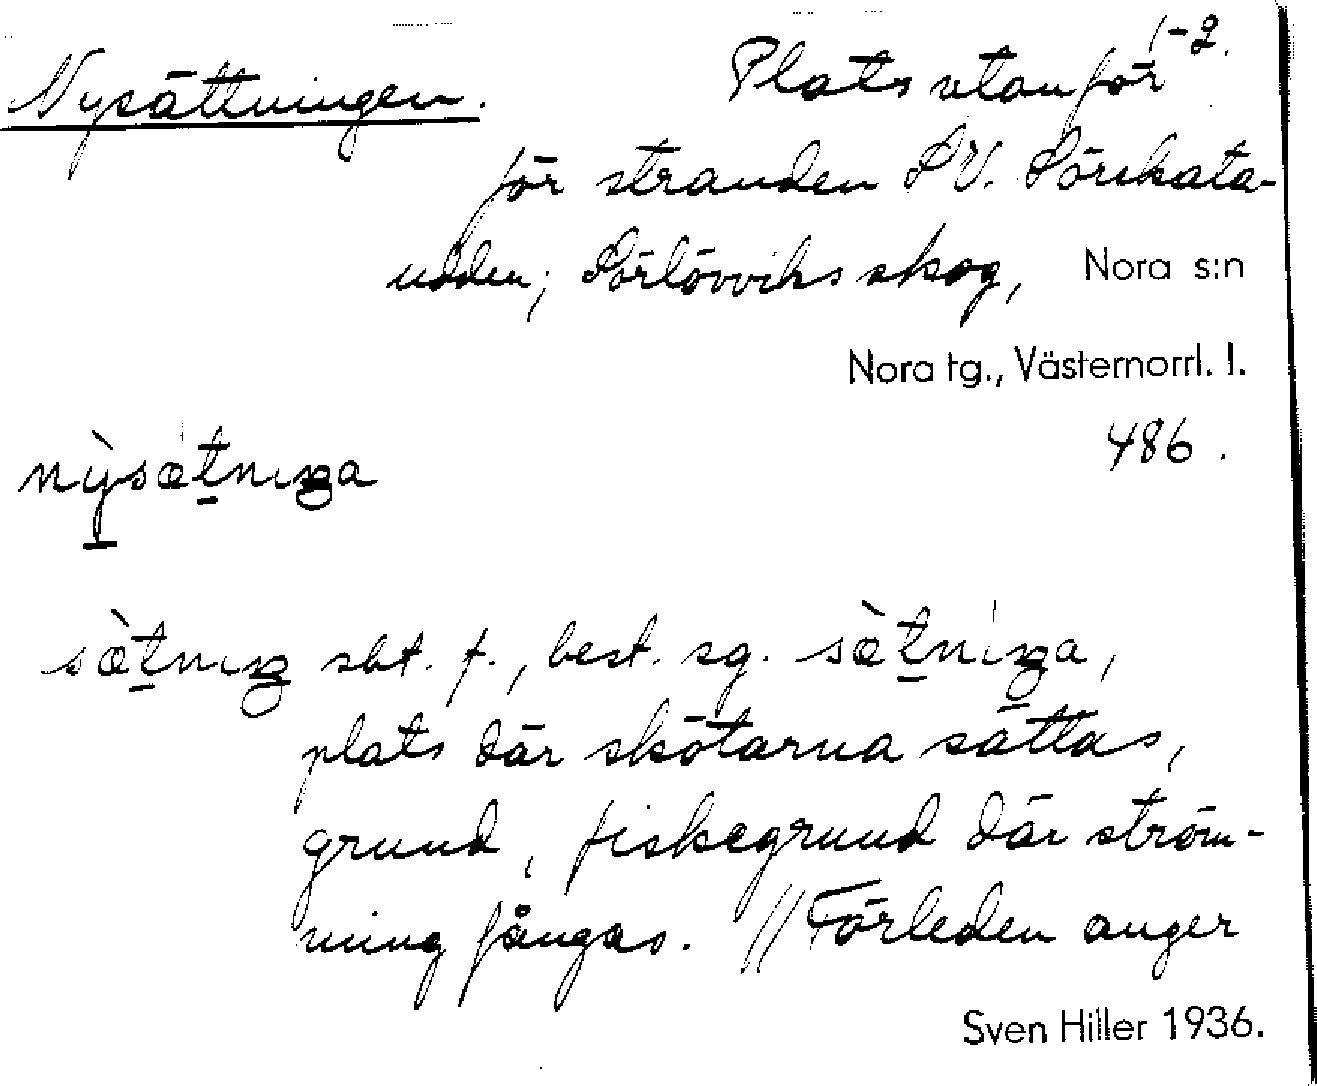 1-2.
Nysättningen. Plats utanför
för stranden SV. Sörskata-
udden; Sörlövviks skog, Nora s:n
Nora tg., Västernorrl. l.
486.
nỳsætnıŋa
sæ̀tnıŋ sbt. f., best. sg. sæ̀tnıŋa,
plats där skötarna sättas,
grund, fiskegrund där ström-
ming fångas. // Förleden anger
Sven Hiller 1936.